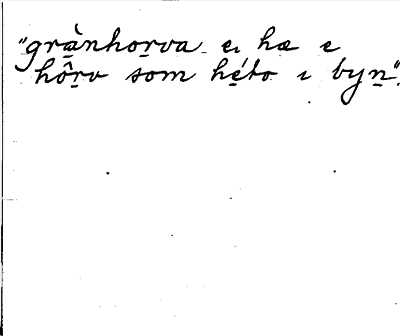 "grànhorva eı hæ e
hôrv som héto ı byn".